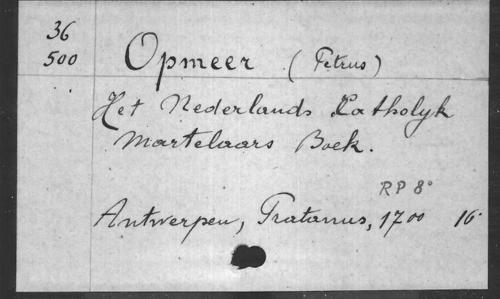 36
500
Opmeer (Petrus)
Het Nederlands Katholyk
Martelaars Boek.
RP 8°
Antwerpen, Pratanus, 1700 16°